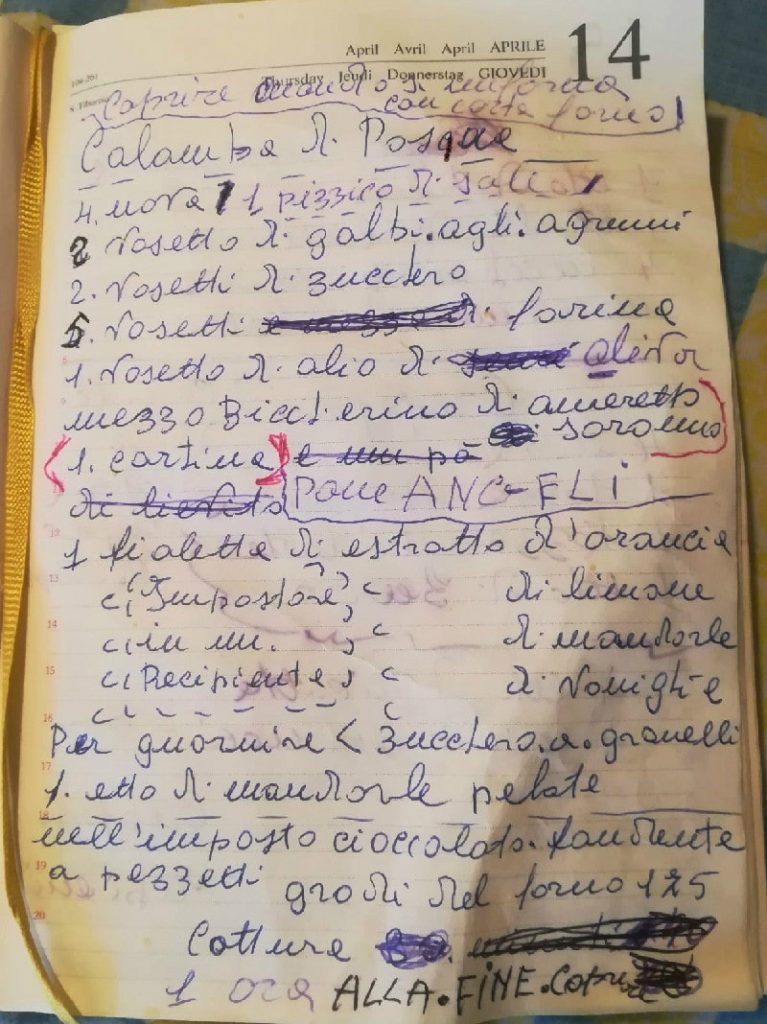 April Avril April APRILE 14
Thursday Jeudi Donnerstag GIOVEDI
Coprire quando si inforna
con carta forno
Calomba di Pasqua
4. uova 1 pizzico di sali
2 vasetto di galbi. agli. agrumi
2. vasetti di zucchero
5. vasetti di farina
1. vasetto di olio di oliva
mezzo Bicchierino di ameretto
di saronno
1. cartina e un pò
di lievito Pane ANG-ELI
12
1 fialetta di estratto d'arancia
13
(Impostare) di limone
14
in un. di mandorle
15
Recipiente di Vaniglie
16
Per guarnire < zucchero. a. granelli
17
1. etto di mandorle pelate
18
nell'imposto cioccolato. fondente
19
a pezzetti gradi del forno 175
20
Cottura
1 ora ALLA. FINE. Copri